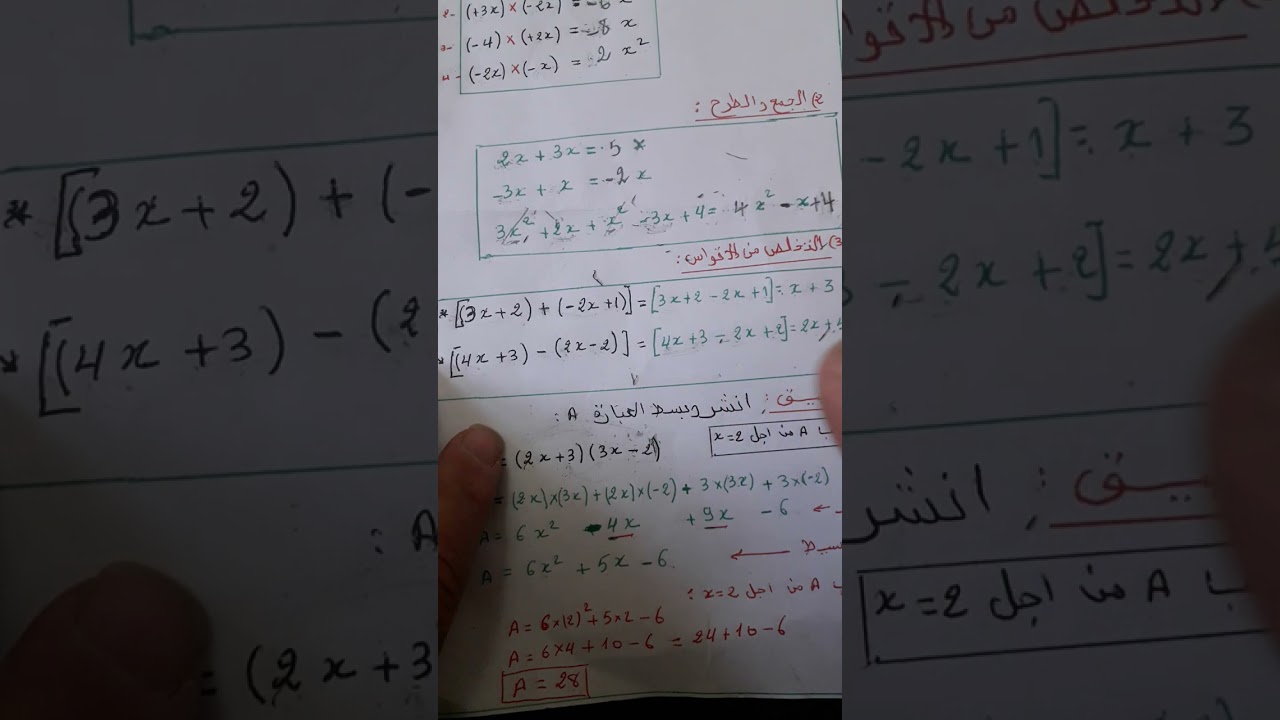 (+3x) × (-2x) = -6 x
(-4) × (+2x) = -8 x
(-2x) × (-x) = 2 x²
2) الجمع والطرح :
2x + 3x = 5 x
-3x + x = -2 x
3x² + 2x + x² - 3x + 4 = 4 x² - x + 4
3) التخلص من الاقواس :
* [(3x+2) + (-2x+1)] = [3x+2 - 2x+1] = x + 3
* [(4x+3) - (2x-2)] = [4x+3 - 2x+2] = 2x+5
انشر وبسط العبارة A :
A من اجل x=2
= (2x+3) (3x-2)
= (2x)×(3x) + (2x)×(-2) + 3×(3x) + 3×(-2)
A = 6x² - 4x + 9x - 6 ←
A = 6x² + 5x - 6 ←
A من اجل x=2 :
A = 6×(2)² + 5×2 - 6
A = 6×4 + 10 - 6 = 24 + 10 - 6
A = 28